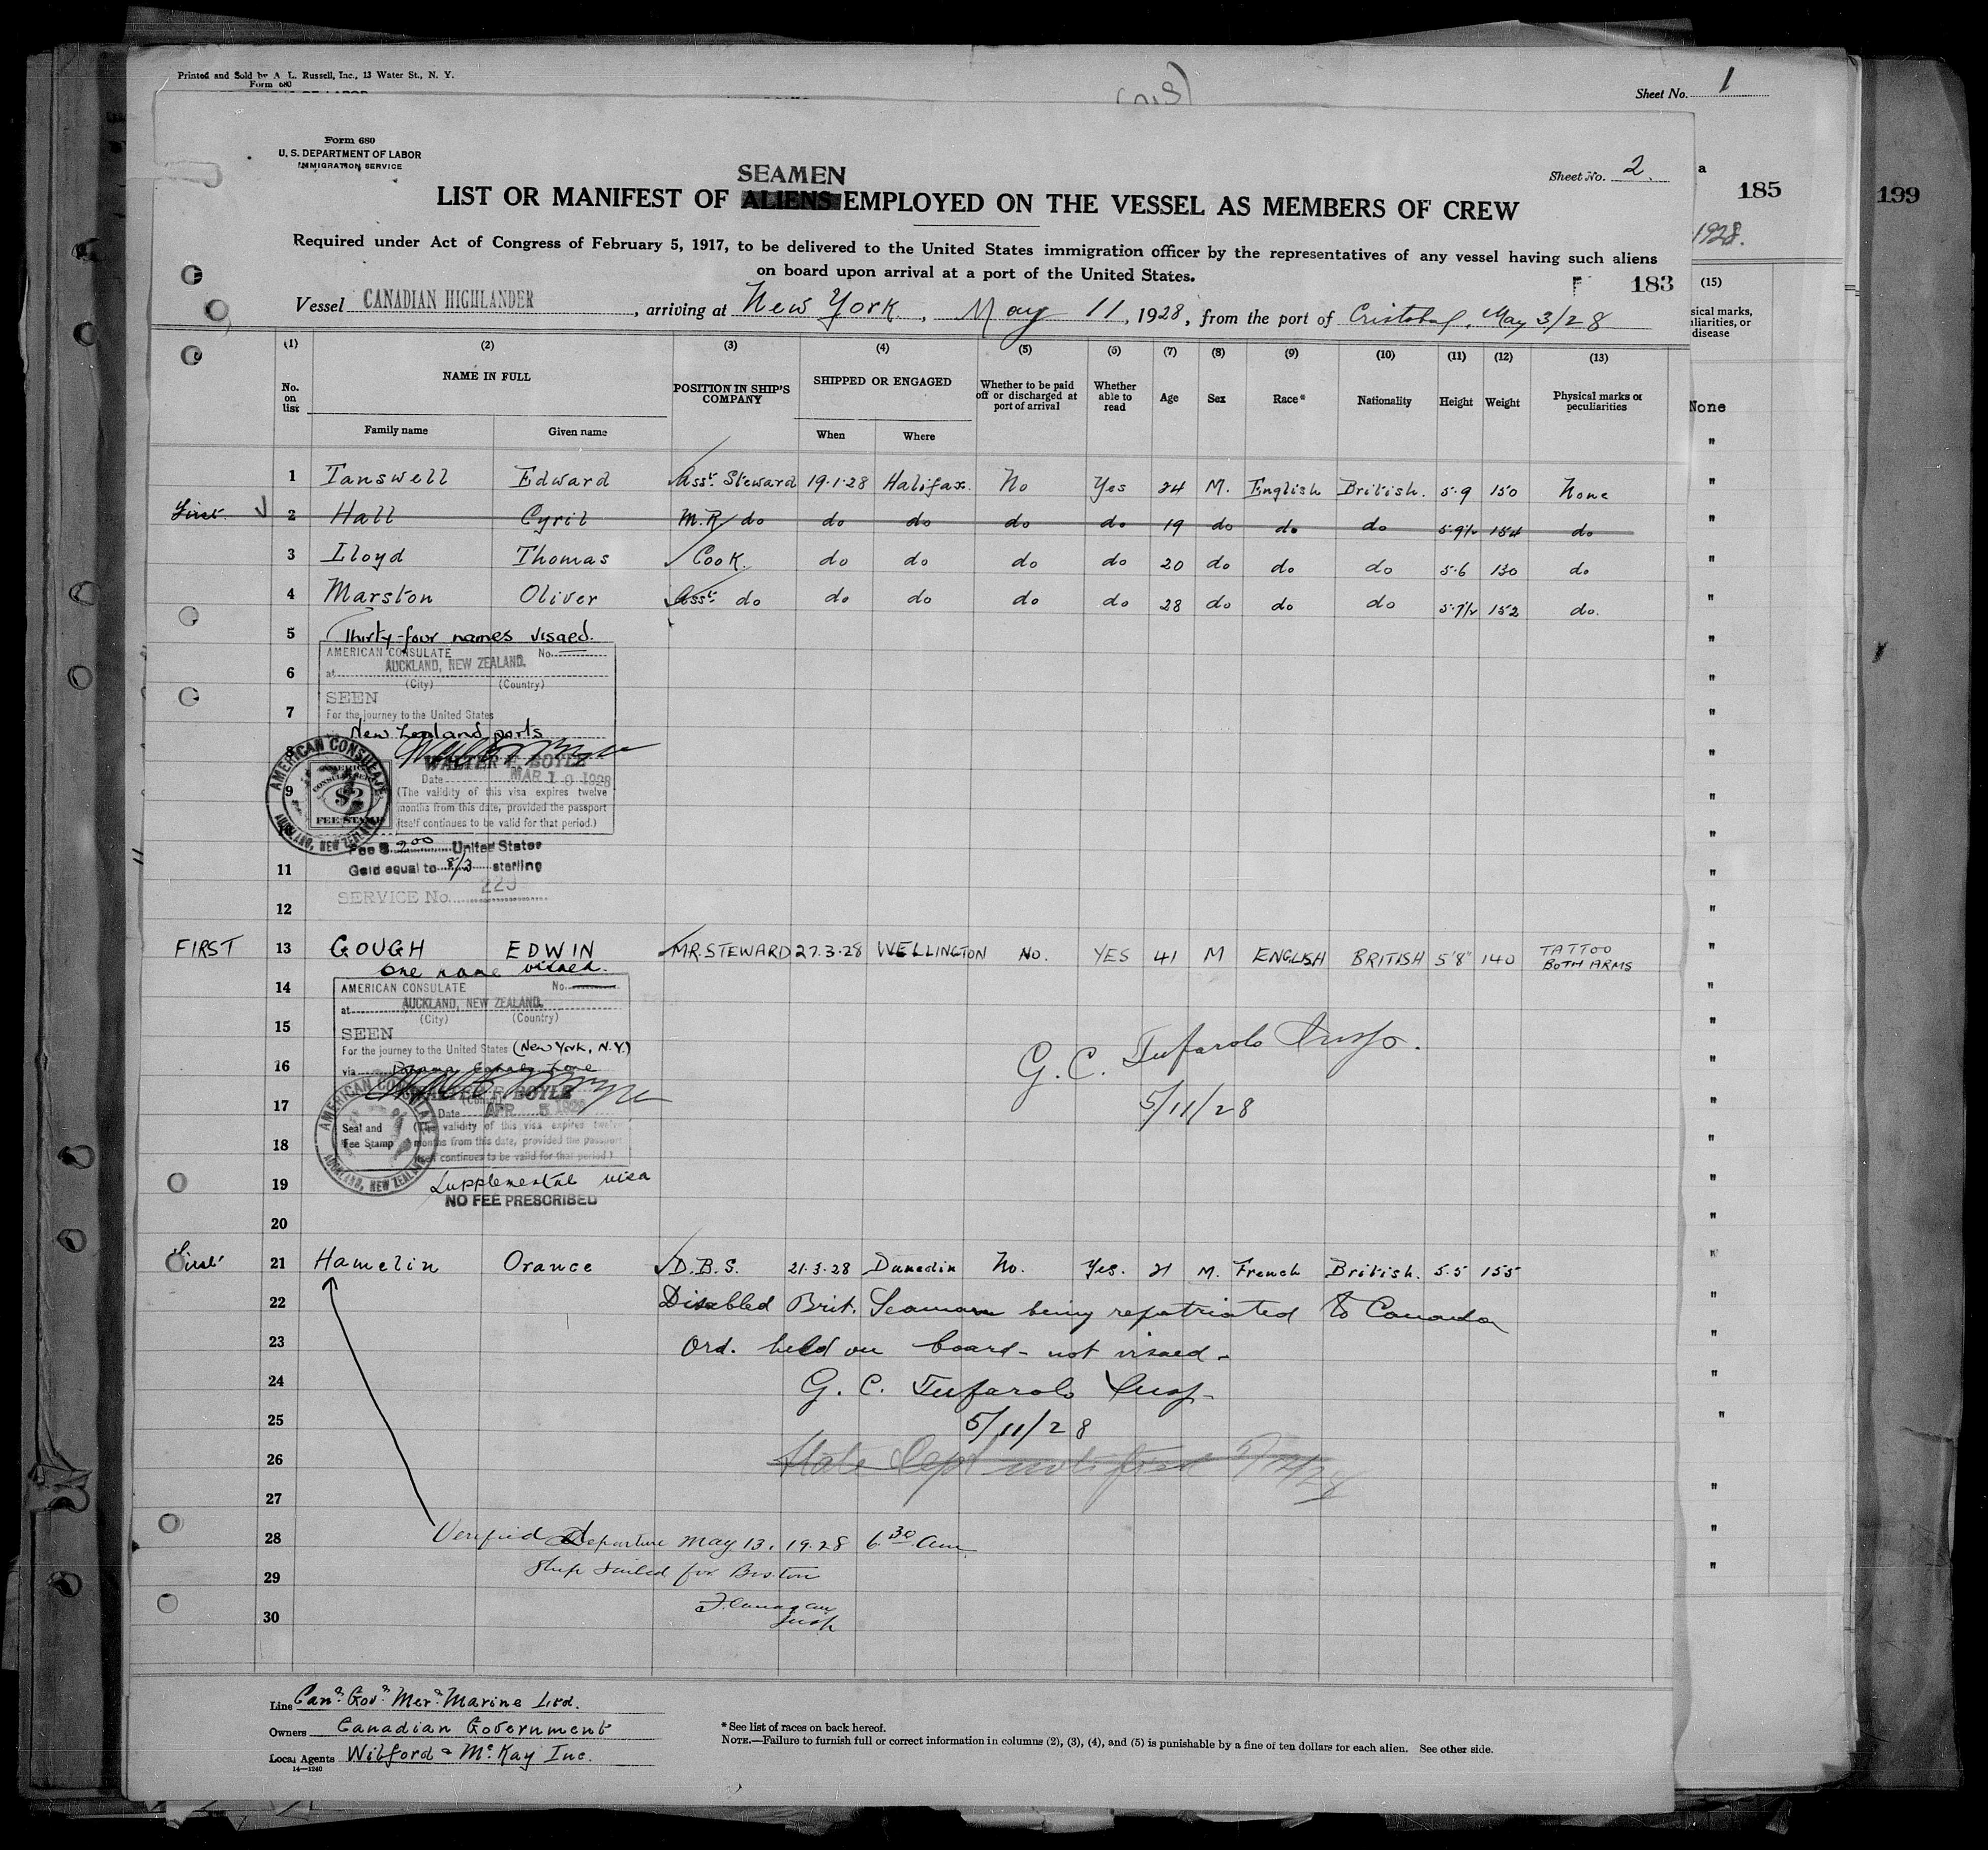 Printed and Sold by A. L. Russell, Inc., 13 Water St., N. Y.
Form 680
Sheet No. 1
Form 680
U. S. DEPARTMENT OF LABOR
IMMIGRATION SERVICE
Sheet No. 2
a
185
199
SEAMEN
LIST OR MANIFEST OF ALIENS EMPLOYED ON THE VESSEL AS MEMBERS OF CREW
1928.
Required under Act of Congress of February 5, 1917, to be delivered to the United States immigration officer by the representatives of any vessel having such aliens
on board upon arrival at a port of the United States.
183
Vessel CANADIAN HIGHLANDER, arriving at New York, May 11, 1928, from the port of Cristobal, May 3/28
(15)
sical marks,
uliarities, or
disease
(1) (2) (3) (4) (5) (6) (7) (8) (9) (10) (11) (12) (13)
No. on list
NAME IN FULL
Family name Given name
POSITION IN SHIP'S COMPANY
SHIPPED OR ENGAGED
When Where
Whether to be paid off or discharged at port of arrival
Whether able to read
Age Sex Race* Nationality Height Weight
Physical marks or peculiarities
None
1 Tanswell Edward Asst. Steward 19·1·28 Halifax. No Yes 24 M. English British. 5·9 150 None
First 2 Hall Cyril M.R. do do do do do 19 do do do 5·9½ 154 do
3 Lloyd Thomas Cook. do do do do 20 do do do 5·6 130 do
4 Marston Oliver Asst. do do do do do 28 do do do 5·7½ 152 do.
5 Thirty-four names visaed.
AMERICAN CONSULATE No.
at AUCKLAND, NEW ZEALAND.
6
(City) (Country)
SEEN
7 For the journey to the United States
New Zealand ports
8
WALTER F. BOYLE
Date MAR 10 1928
9 (The validity of this visa expires twelve
months from this date, provided the passport
itself continues to be valid for that period.)
AMERICAN CONSULATE
AUCKLAND, NEW ZEALAND
AMERICAN CONSULAR SERVICE
$2
FEE STAMP
Fee $ 2.00 United States
11 Gold equal to 8/3 sterling
SERVICE No. 229
12
FIRST 13 GOUGH EDWIN MR. STEWARD 27.3.28 WELLINGTON NO. YES 41 M ENGLISH BRITISH 5'8" 140 TATTOO BOTH ARMS
One name visaed.
14 AMERICAN CONSULATE No.
at AUCKLAND, NEW ZEALAND.
(City) (Country)
15 SEEN
For the journey to the United States (New York, N.Y.)
16 via Panama Canal Zone
G. C. Tufarolo Insp.
5/11/28
17 WALTER F. BOYLE
(Consul)
Date APR 5 1928
Seal and Fee Stamp
(The validity of this visa expires twelve
18 months from this date, provided the passport
itself continues to be valid for that period.)
AMERICAN CONSULATE
AUCKLAND, NEW ZEALAND
19 Supplemental visa
NO FEE PRESCRIBED
20
First 21 Hamelin Orance D.B.S. 21·3·28 Dunedin No. Yes. 21 M. French British. 5.5 155
22 Disabled Brit. Seaman being repatriated to Canada
23 Ord. held on board - not visaed -
24 G. C. Tufarolo Insp.
25 5/11/28
26 State Dept notified
27
28 Verified departure May 13, 1928 6 30 am.
29 Ship sailed for Boston
30 Flanagan
Insp
Line Can. Gov. Mer. Marine Ltd.
Owners Canadian Government
Local Agents Wilford & McKay Inc.
14—1240
* See list of races on back hereof.
NOTE.—Failure to furnish full or correct information in columns (2), (3), (4), and (5) is punishable by a fine of ten dollars for each alien. See other side.